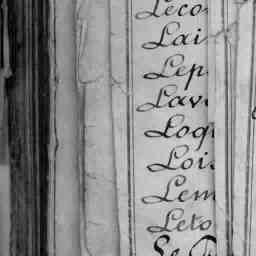 Leco
Lai
Lep
Lav
Logi
Lois
Lem
Leto
Le